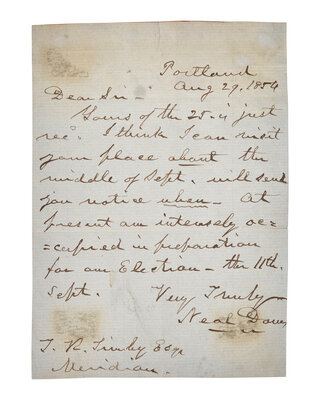 Portland
Aug 29, 1854
Dear Sir -
Yours of the 25. is just
rec'd. I think I can visit
your place about the
middle of Sept. will send
you notice when - At
present am intensely oc=
=cupied in preparation
for our Election - the 11th.
Sept. Very Truly
Neal Dow
T. R. Timby Esqr
Meridian.